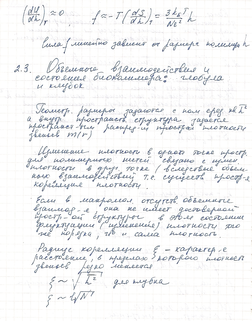 (dU/dh)_T ≈ 0    f = -T (dS/dh)_T = 3k_БT/Nℓ² h
Сила f линейно зависит от размера полимера h
2.3. Объемные взаимодействия и
состояния биополимера: глобула
и клубок
Геометр. размеры задаются с пом сред h²
а внутр пространств структура задается
простран-ным распред-м плотности
звеньев n(r)
Изменение плотности в одной точке простр
для полимерных цепей связано с измен.
плотности в друг точке (вследствие объем-
ных взаимодействий) т.е. существ простр-я
корреляция плотности.
Если в макромол. отсутств объемные
взаимод-я она не имеет достоверной
простр-ой структуры. в этом состоянии
флуктуации (изменение) плотности того
же порядка, что и сама плотность
Радиус корреляции ξ – характер-е
расстояние, в пределах которого плотность
звеньев меняется
ξ ~ √h²   для клубка
ξ ~ ℓ√N